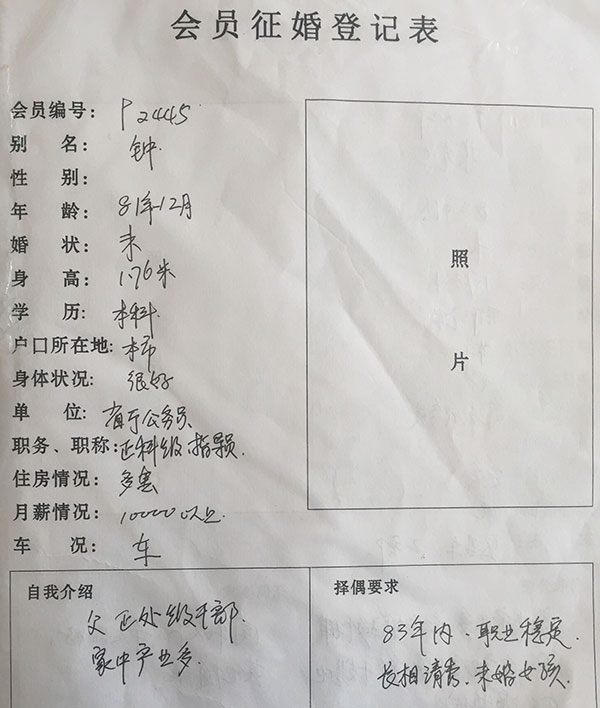 会员征婚登记表
会员编号: P2445
别 名: 钟.
性 别:
年 龄: 81年12月
婚 状: 未
身 高: 1.76米
学 历: 本科.
户口所在地: 本市
身体状况: 很好
单 位: 省厅公务员
职务、职称: 正科级.
住房情况: 多套
月薪情况: 10000以上.
车 况: 车
照
片
自我介绍
父 正处级干部.
家中产业多.
择偶要求
83年内. 职业稳定.
长相清秀. 未婚女孩.